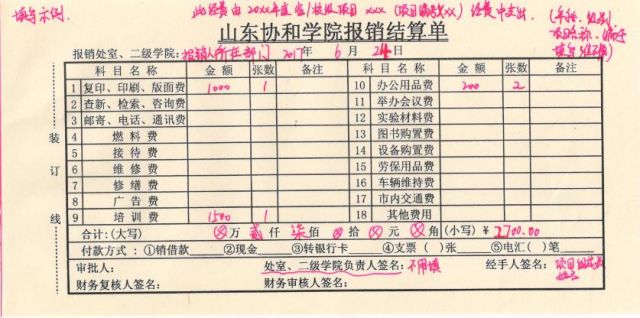 填写示例.
此经费由20xx年度省/校级项目xxx(项目编号xx)经费中支出.
(年份、级别
项目名称、编号
填写准确)
山东协和学院报销结算单
报销处室、二级学院:报销人所在部门 2017年 6月 24日
科目名称 金额 张数 备注 科目名称 金额 张数 备注
1 复印、印刷、版面费 1000 1 10 办公用品费 200 2
2 查新、检索、咨询费 11 举办会议费
3 邮寄、电话、通讯费 12 实验材料费
4 燃料费 13 图书购置费
5 接待费 14 设备购置费
6 维修费 15 劳保用品费
7 修缮费 16 车辆维持费
8 广告费 17 市内交通费
9 培训费 1500 1 18 其他费用
合计:(大写) ⊗万 贰仟 柒佰 ⊗拾 ⊗元 ⊗角 (小写)¥2700.00
付款方式: ①销借款 ②现金 ③转银行卡 ④支票( )张 ⑤电汇( )笔
审批人: 处室、二级学院负责人签名:不用填 经手人签名:项目组成员
姓名
财务复核人签名: 财务审核人签名:
装
订
线